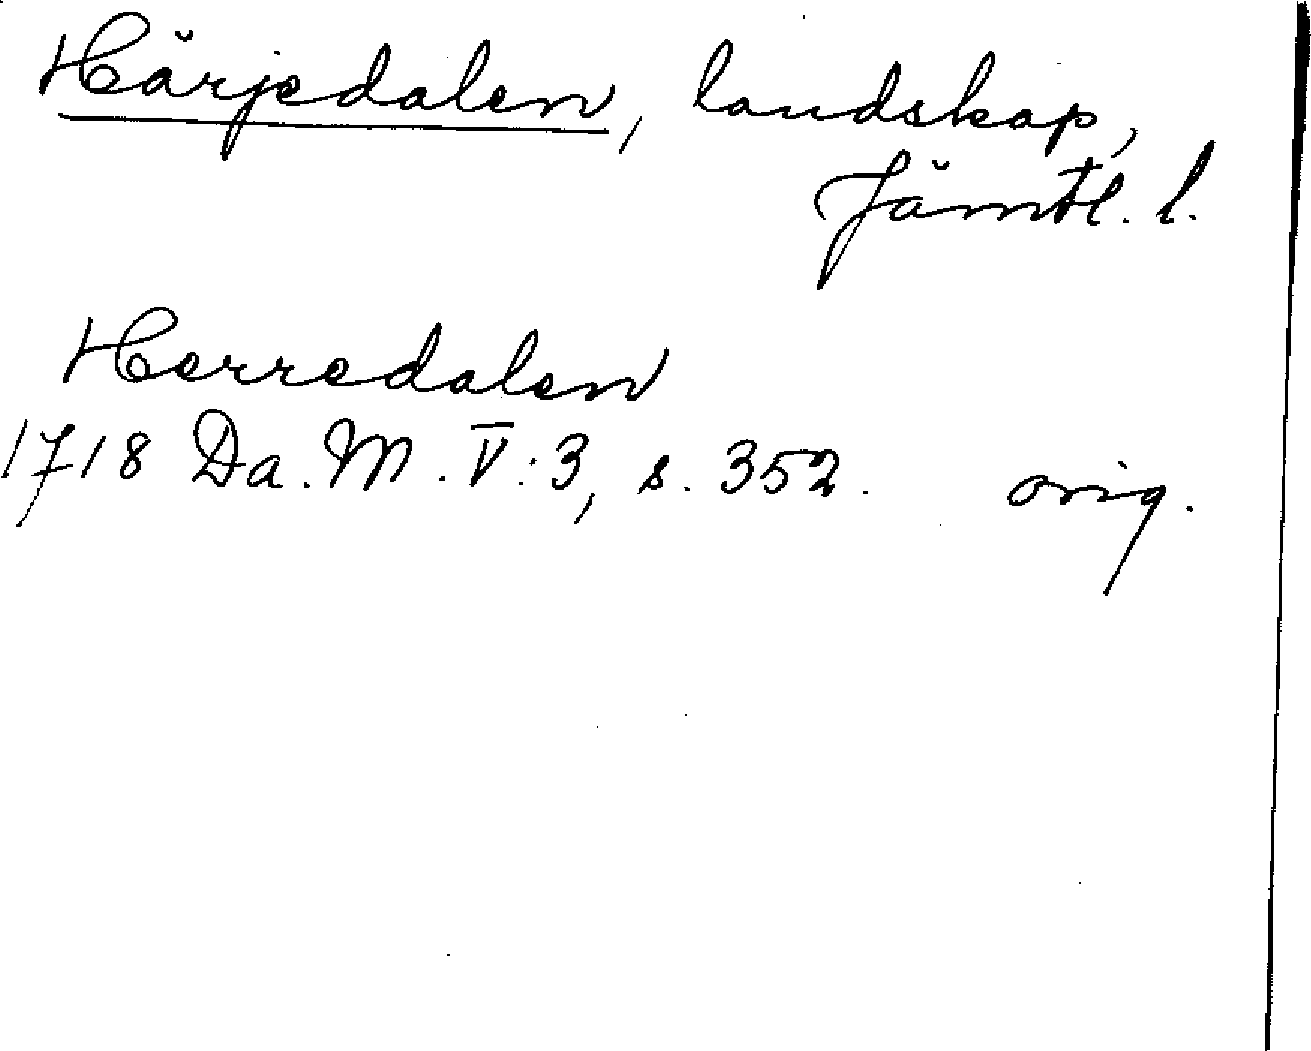 Härjedalen, landskap,
Jämtl. l.
Herredalen
1718 Da. M. V:3, s. 352. orig.